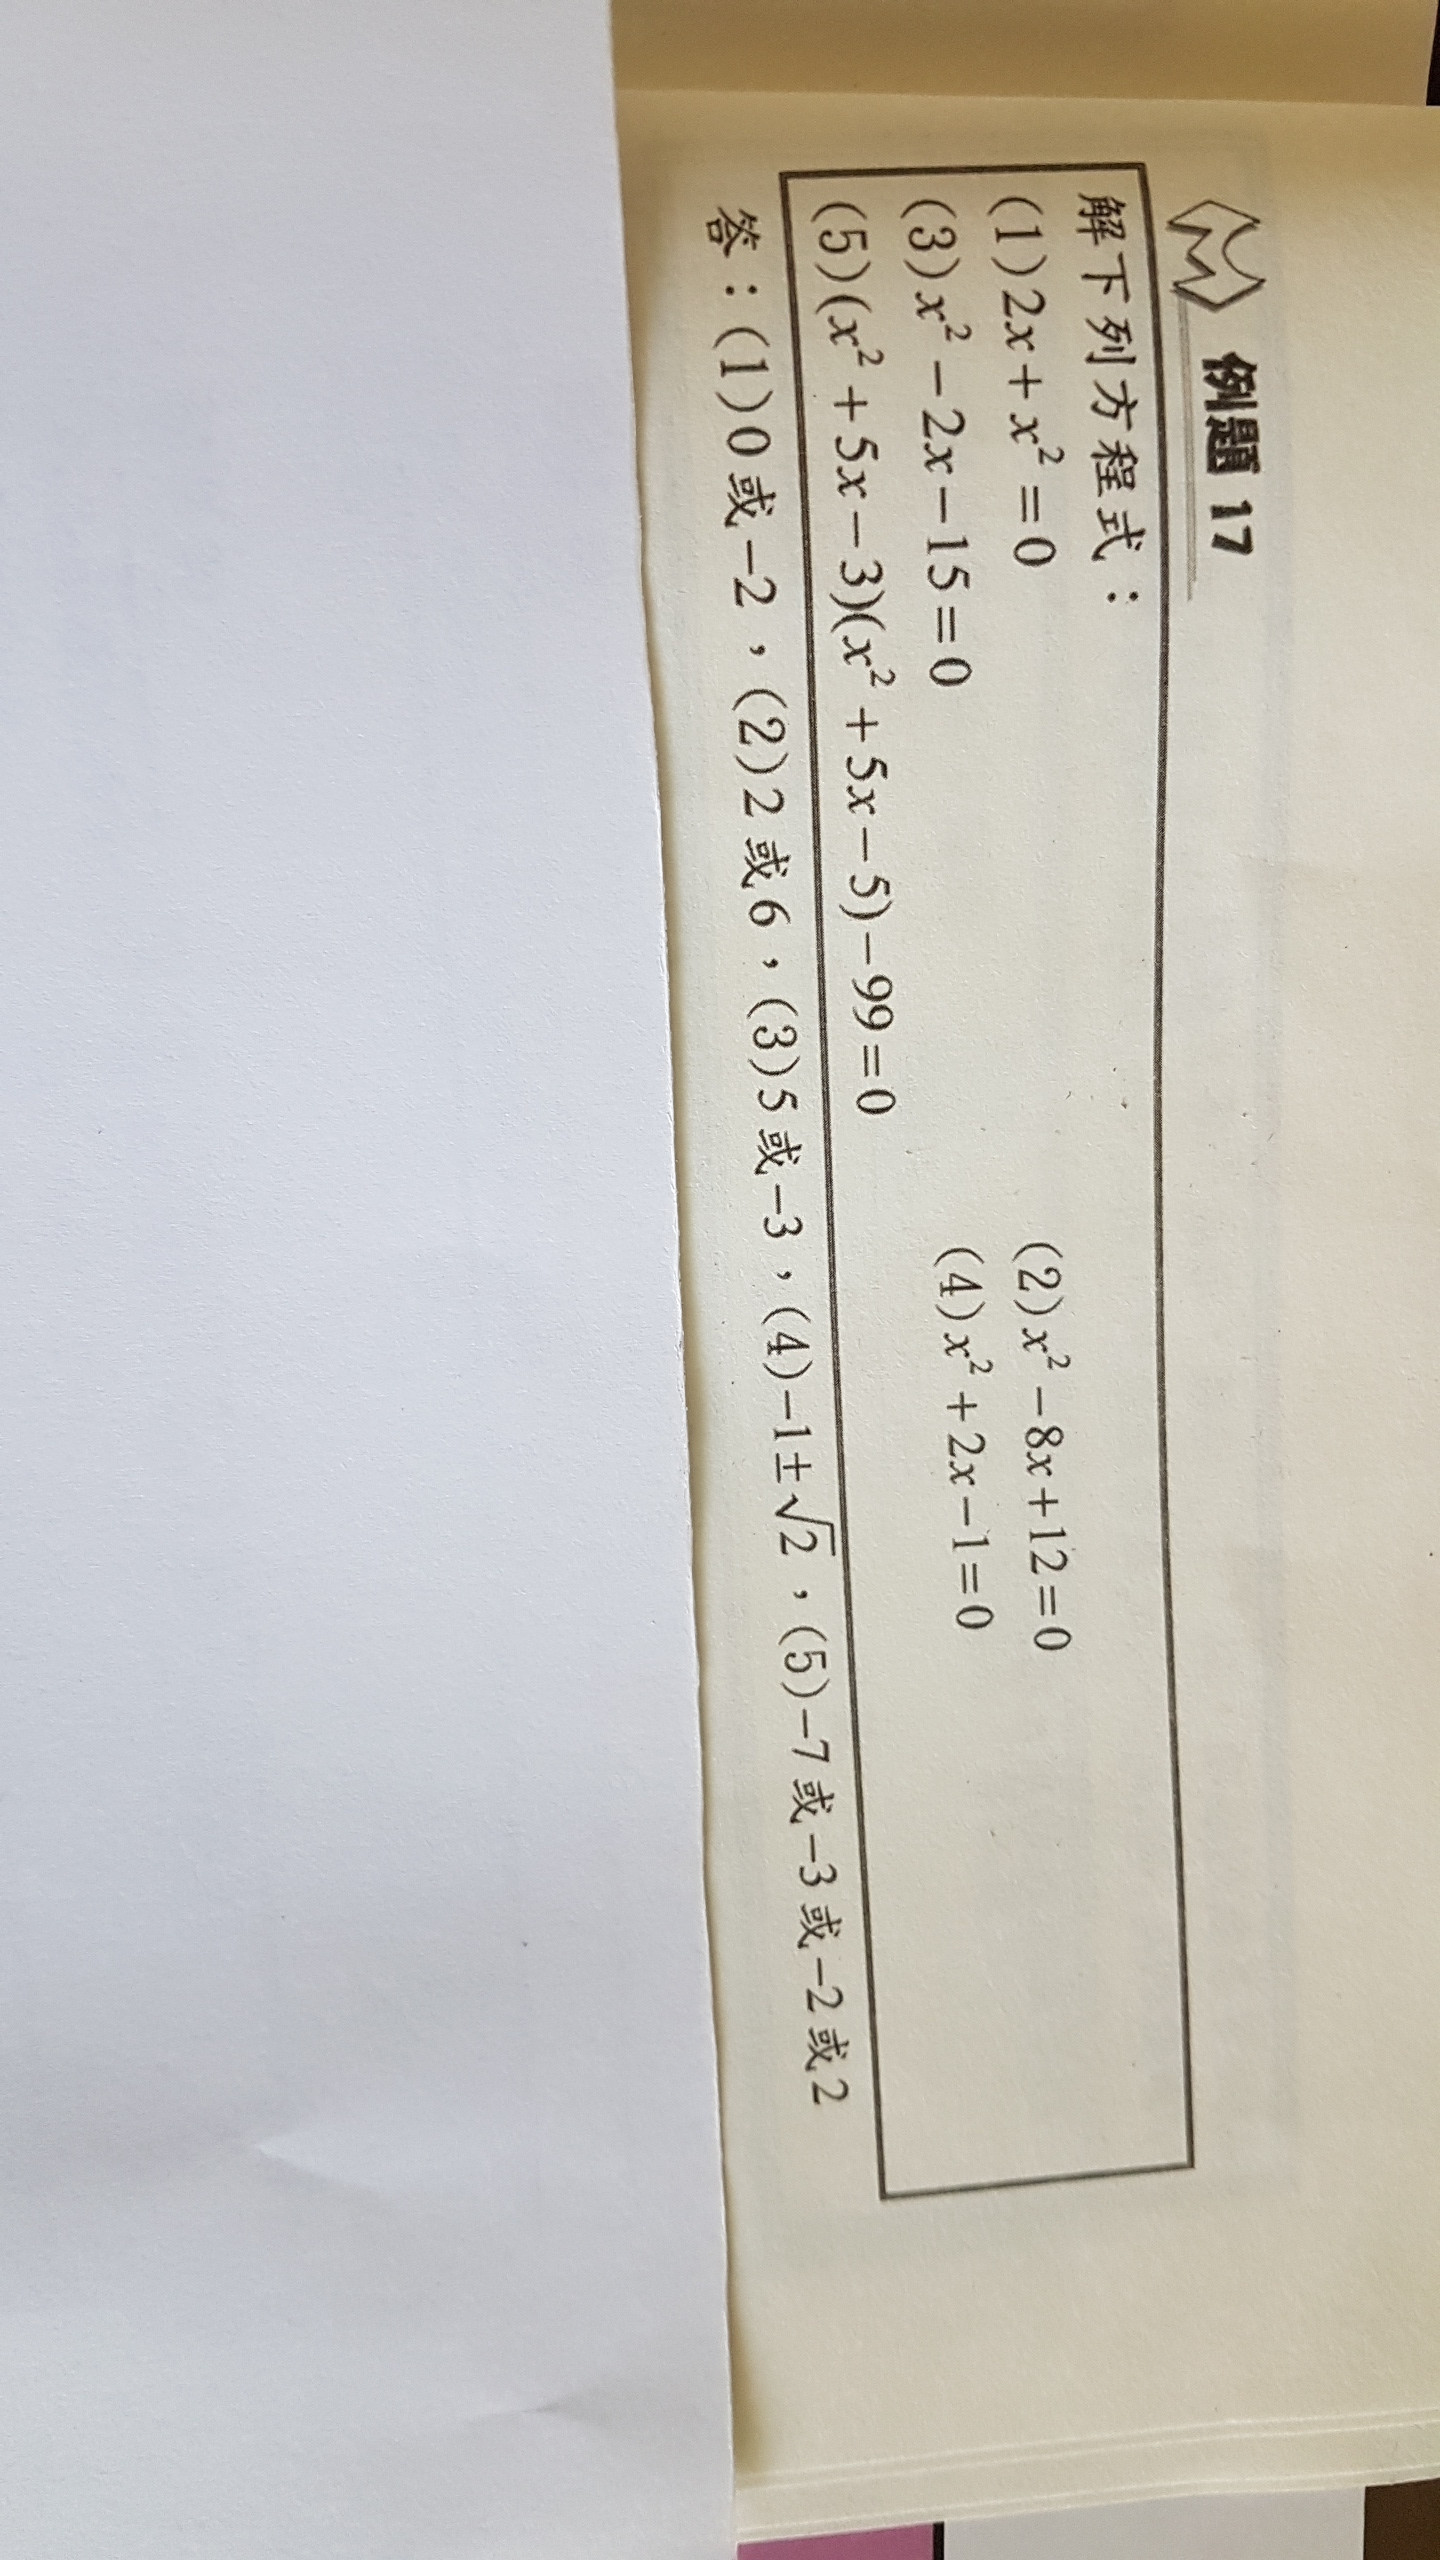 例題 17
解下列方程式：
(1)2x+x²=0 (2)x²-8x+12=0
(3)x²-2x-15=0 (4)x²+2x-1=0
(5)(x²+5x-3)(x²+5x-5)-99=0
答：(1)0或-2，(2)2或6，(3)5或-3，(4)-1±√2，(5)-7或-3或-2或2